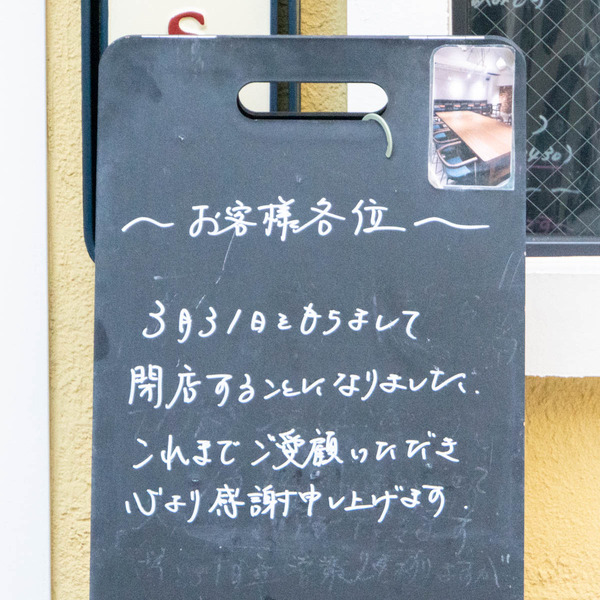 S
〜お客様各位〜
3月31日をもちまして
閉店することになりました.
これまでご愛顧いただき
心より感謝申し上げます.